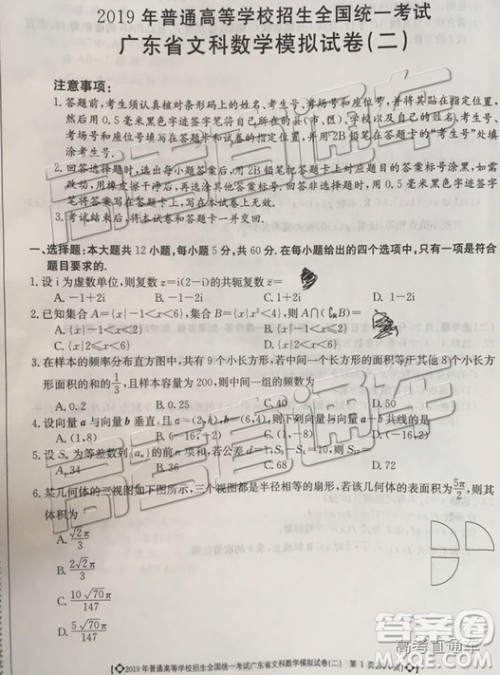 2019 年普通高等学校招生全国统一考试
广东省文科数学模拟试卷(二)
注意事项:
1. 答题前,考生须认真核对条形码上的姓名、考生号、考场号和座位号,并将其贴在指定位置,
然后用 0.5 毫米黑色字迹签字笔将自己所在的县(市、区)、学校以及自己的姓名、考生号、
考场号和座位号填写在答题卡和试卷的指定位置,并用 2B 铅笔在答题卡的“考生号”处填
涂考生号.
2. 回答选择题时,选出每小题答案后,用 2B 铅笔把答题卡上对应题目的答案标号涂黑,如需
改动,用橡皮擦干净后,再选涂其他答案标号.回答非选择题时,用 0.5 毫米黑色字迹签字
笔将答案写在答题卡上.写在本试卷上无效.
3. 考试结束后,将本试卷和答题卡一并交回.
一、选择题:本大题共 12 小题,每小题 5 分,共 60 分.在每小题给出的四个选项中,只有一项是符合
题目要求的.
1. 设 i 为虚数单位,则复数 z=i(2-i) 的共轭复数 z̄=
A. -1+2i B. -1-2i C. 1+2i D. 1-2i
2. 已知集合 A={x|-1<x<6},集合 B={x|x²<4},则 A∩(∁ᵣB)=
A. {x|-1<x<2} B. {x|-1<x≤2}
C. {x|2≤x<6} D. {x|2<x<6}
3. 在样本的频率分布直方图中,共有 9 个小长方形,若中间一个长方形的面积等于其他 8 个小长方
形面积的和的 1/3,且样本容量为 200,则中间一组的频数为
A. 0.2 B. 0.25 C. 40 D. 50
4. 设向量 a 与向量 b 垂直,且 a=(2,k),b=(6,4),则下列向量与向量 a+b 共线的是
A. (1,8) B. (-16,-2) C. (1,-8) D. (-16,2)
5. 设 Sₙ 为等差数列{aₙ}的前 n 项和,若公差 d=1,
A. 34 B. 36 C. 68 D. 72
6. 某几何体的三视图如下图所示,三个视图都是半径相等的扇形,若该几何体的表面积为 5π/2,则其
体积为
A. √2π/3
B. 2√2π/3
C. 10√70π/147
D. 5√70π/147
2019 年普通高等学校招生全国统一考试广东省文科数学模拟试卷(二) 第 1 页
高考直通车
答案圈
高考直通车